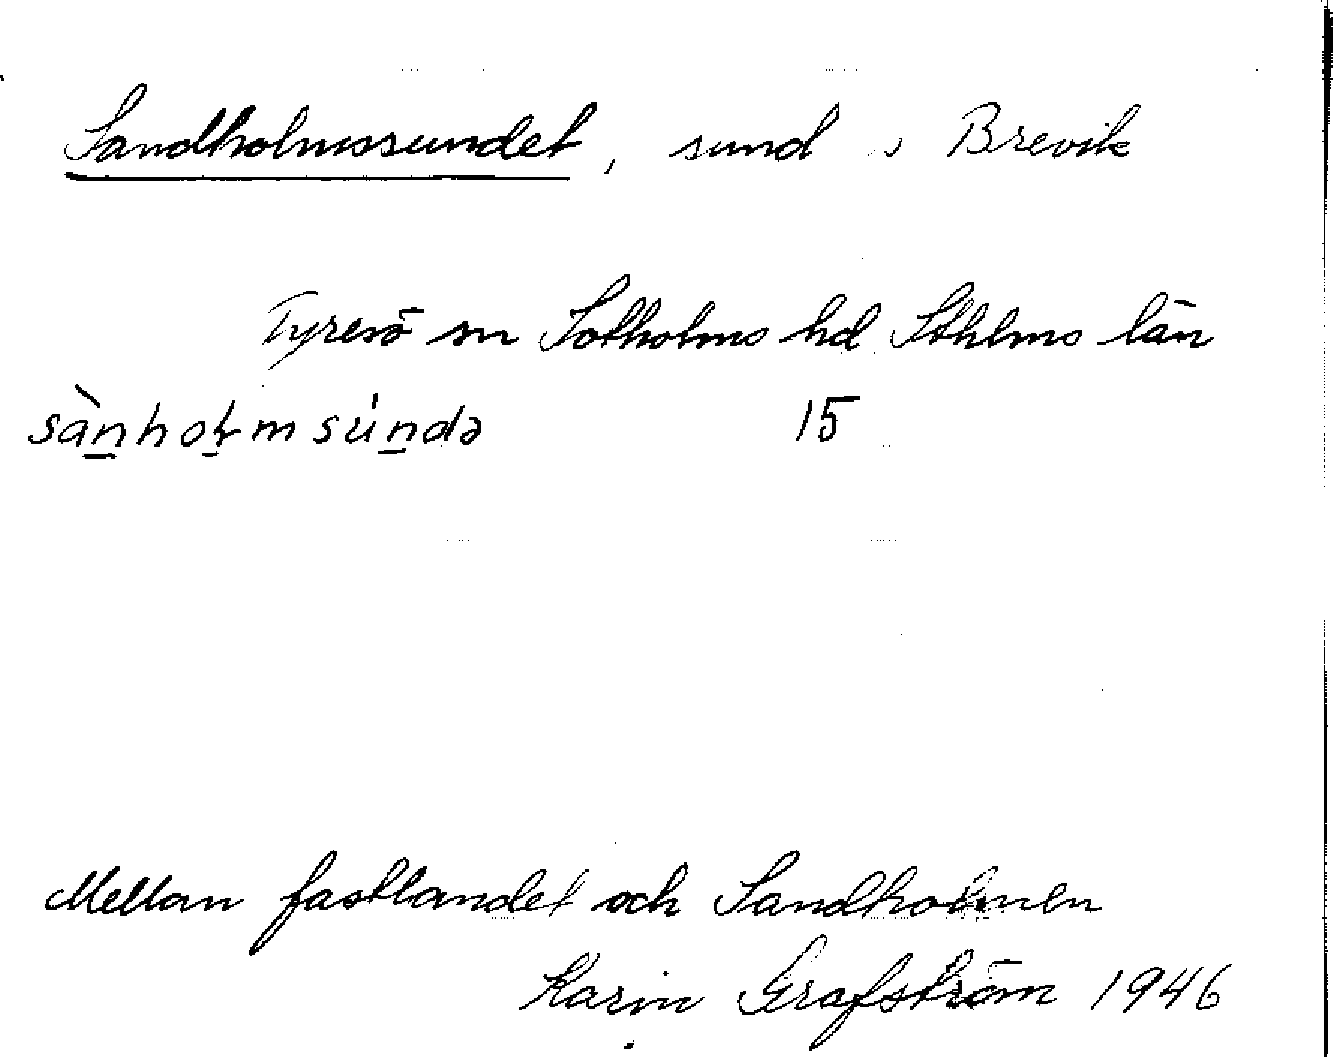 Sandholmssundet, sund s Brevik
Tyresö sn Sotholms hd Sthlms län
sàn̲hoł̲msún̲də 15
Mellan fastlandet och Sandholmen
Karin Grafström 1946